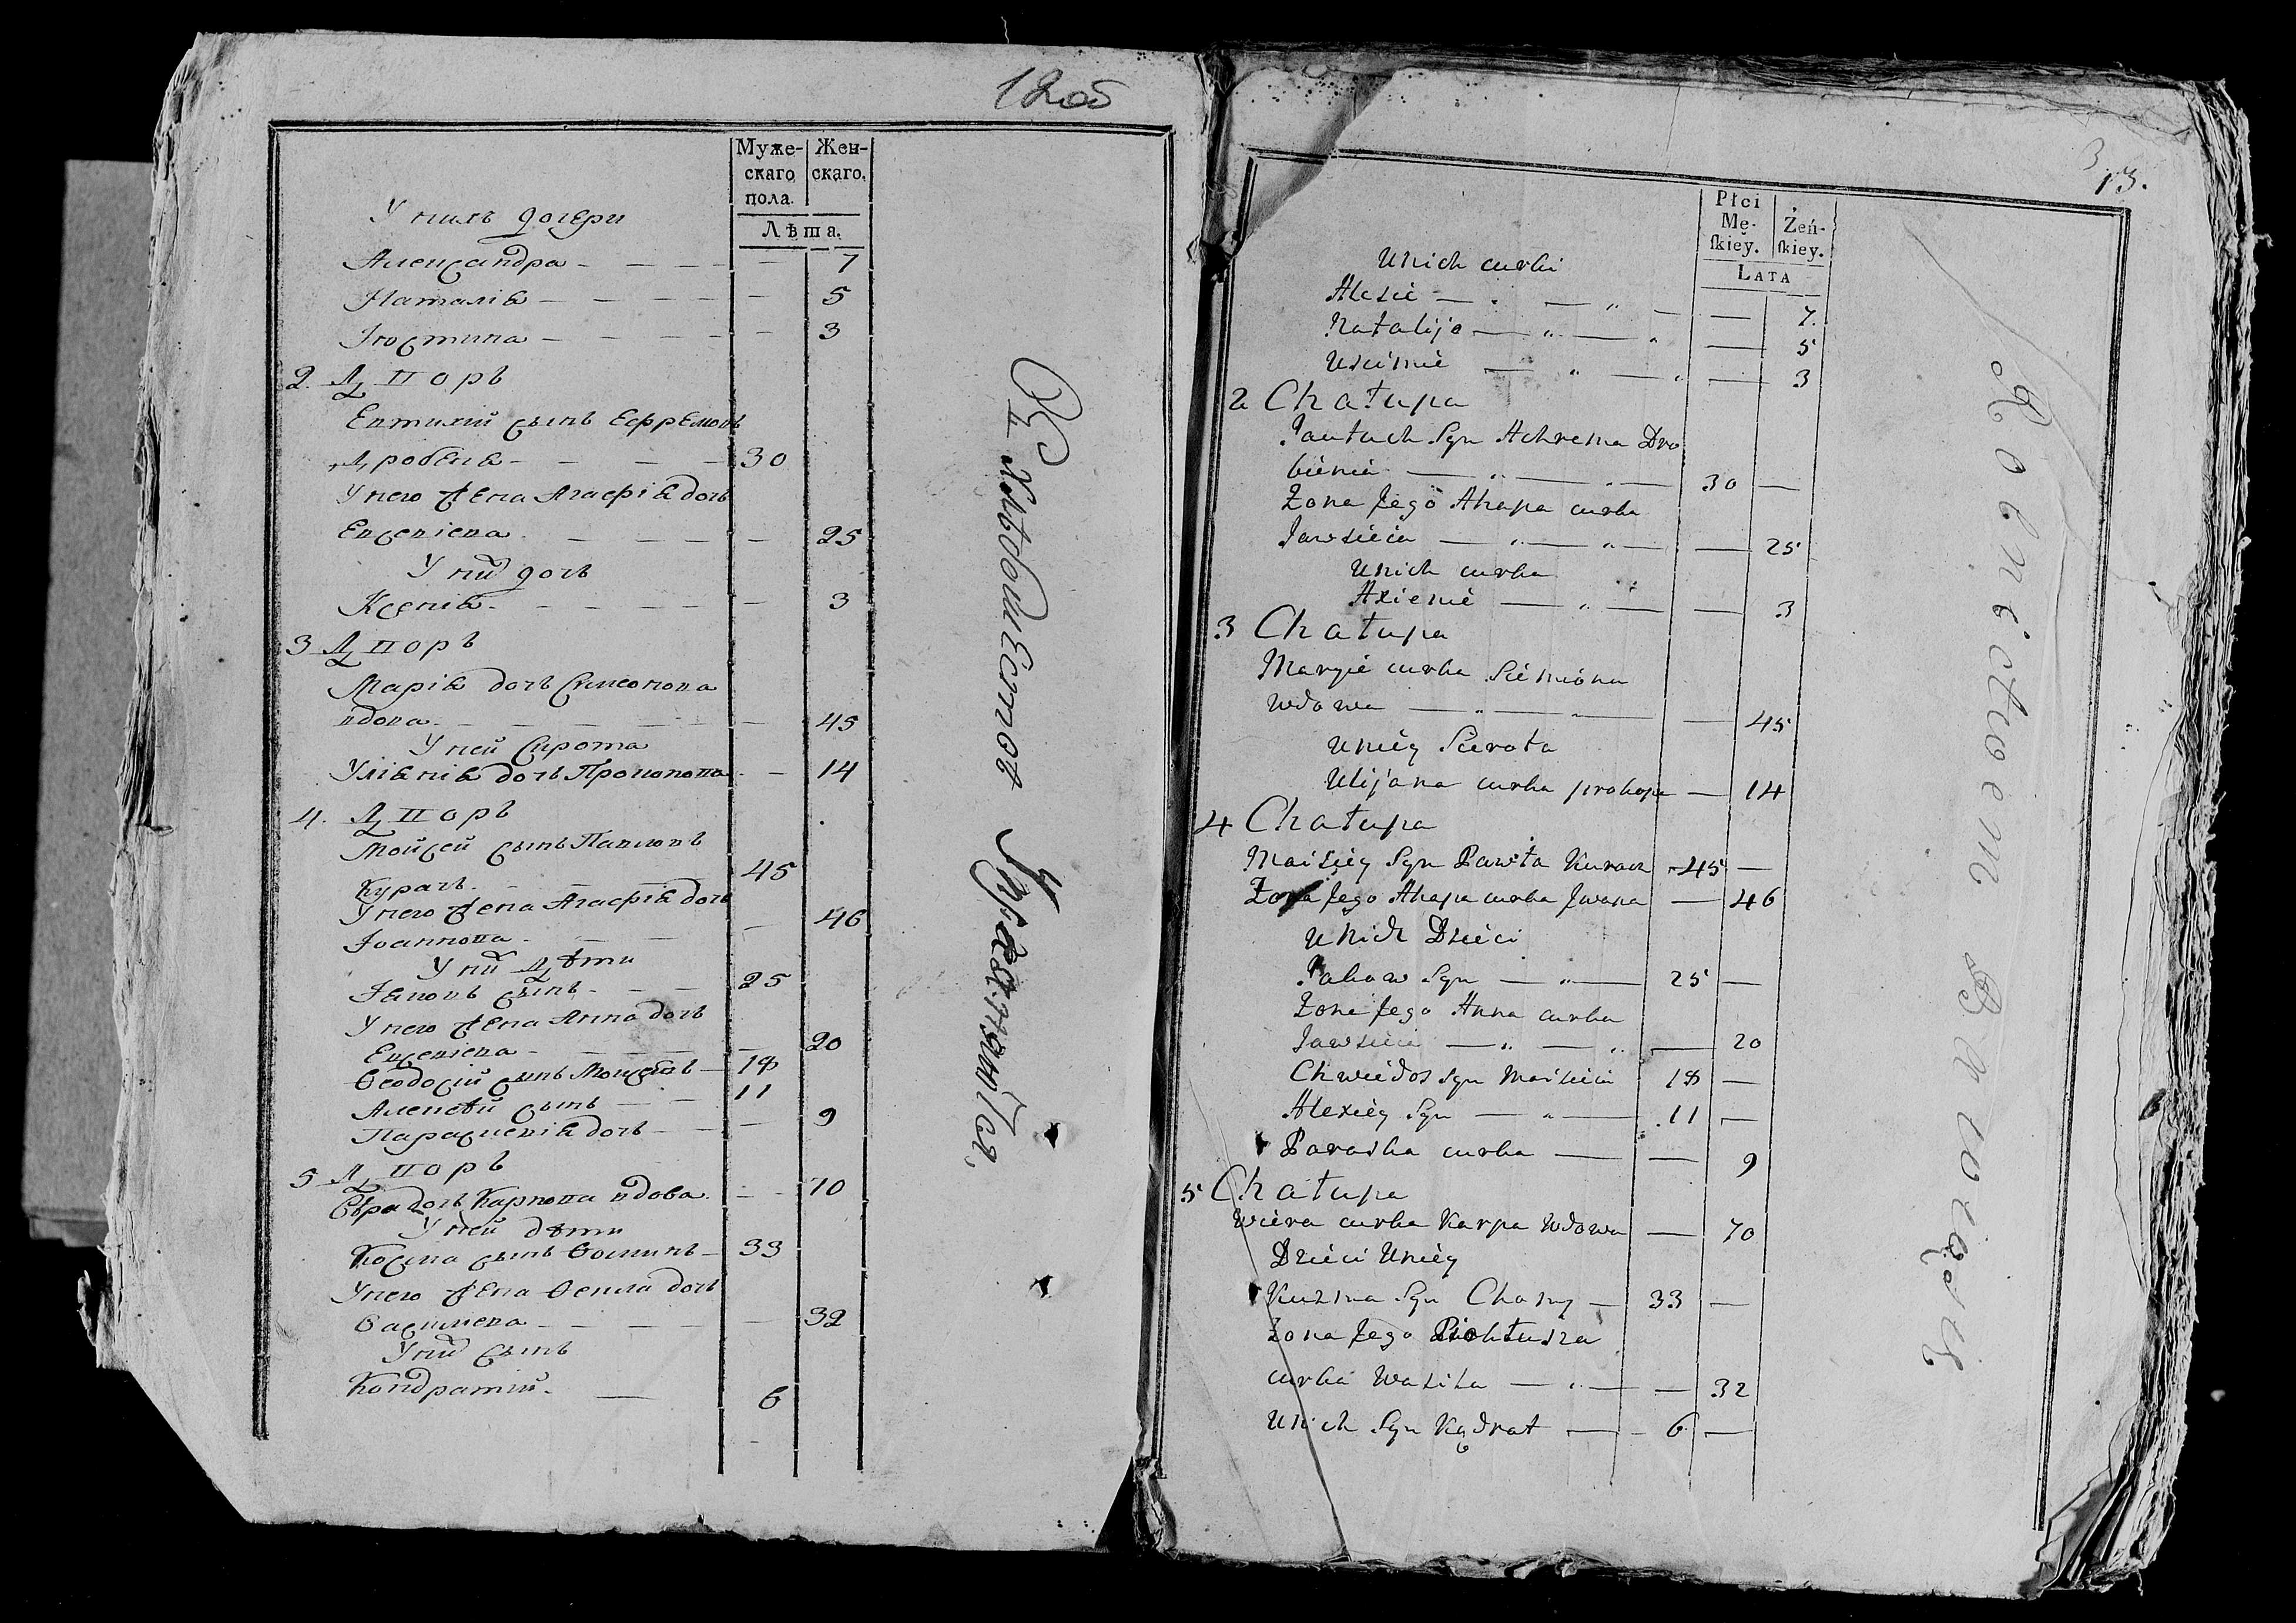 12об
Муже-
скаго
пола.
Жен-
скаго.
Лѣта.
У нихъ дочери
Александра - - - - - 7
Наталія - - - - - 5
Іюстина - - - - - 3
2. Дворъ
Евтихій сынъ Ефремовъ
Дробеня - - - - 30
У него жена Агафія дочь
Евсевіева - - - - - 25
У ни дочь
Ксенія - - - - - 3
3 Дворъ
Марія дочь Симеонова
вдова - - - - - 45
У ней Сирота
Уліянія дочь Прокопова - - 14
4. Дворъ
Мойсей сынъ Павловъ
Курачъ - - - 45
У него жена Агафія дочь
Іоаннова - - - - 46
У ни дѣти
Іаковъ сынъ - - - 25
У него жена Анна дочь
Евсевіева - - - - - 20
Ѳеодосій сынъ Мойсеевъ - 18
Алексѣй сынъ - - - 11
Параскевія дочь - - - 9
5 Дворъ
Вѣра дочь Карпова вдова - - 70
У ней дѣти
Косма сынъ Ѳоминъ - 33
У него жена Ѳекла дочь
Василіева - - - - - 32
У ни сынъ
Кондратій - — 6
Хлѣбопашествомъ
3
13.
Płci
Mę-
ſkiey.
Żeń-
ſkiey.
LATA
Unich curki
Alesie — . — „ — — 7.
Natalija — „ — „ — 5
Uscinie — „ — „ — 3
2 Chatupa
Jautuch Syn Achrema Dro
bienia — „ — „ — 30 —
Zona Jego Ahapa curka
Jawsieia — „ — „ — — 25
Unich curka
Axienie — „ — — 3
3 Chatupa
Maryie curka Siemiona
Wdowa — „ — „ — — 45
Uniey Sierota
Ulijana curka prokopa — 14
4 Chatupa
Maisiey Syn Pawła Kuracz - 45 —
Zona Jego Ahapa curka Jwana — 46
Unich Dzieci
Jakow Syn — „ — 25 —
Zona Jego Anna curka
Jawsieia — „ — „ — 20
Chwiedos Syn Maisieia 18 —
Alexiey Syn — „ — 11 —
Paraska curka — — 9
5 Chatupa
Wiera curka Karpa Wdowa — 70
Dzieci Uniey
Kuzma Syn Chomy — 33 —
Zona Jego
curka Wasila — „ — — 32
Unich Syn Kądrat — - 6 —
Rolnictwem